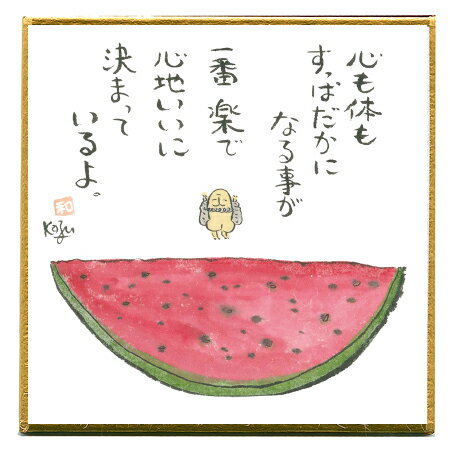 心も体も
すっぱだかに
なる事が
一番 楽で
心地いいに
決まって
いるよ。
和
Kozu